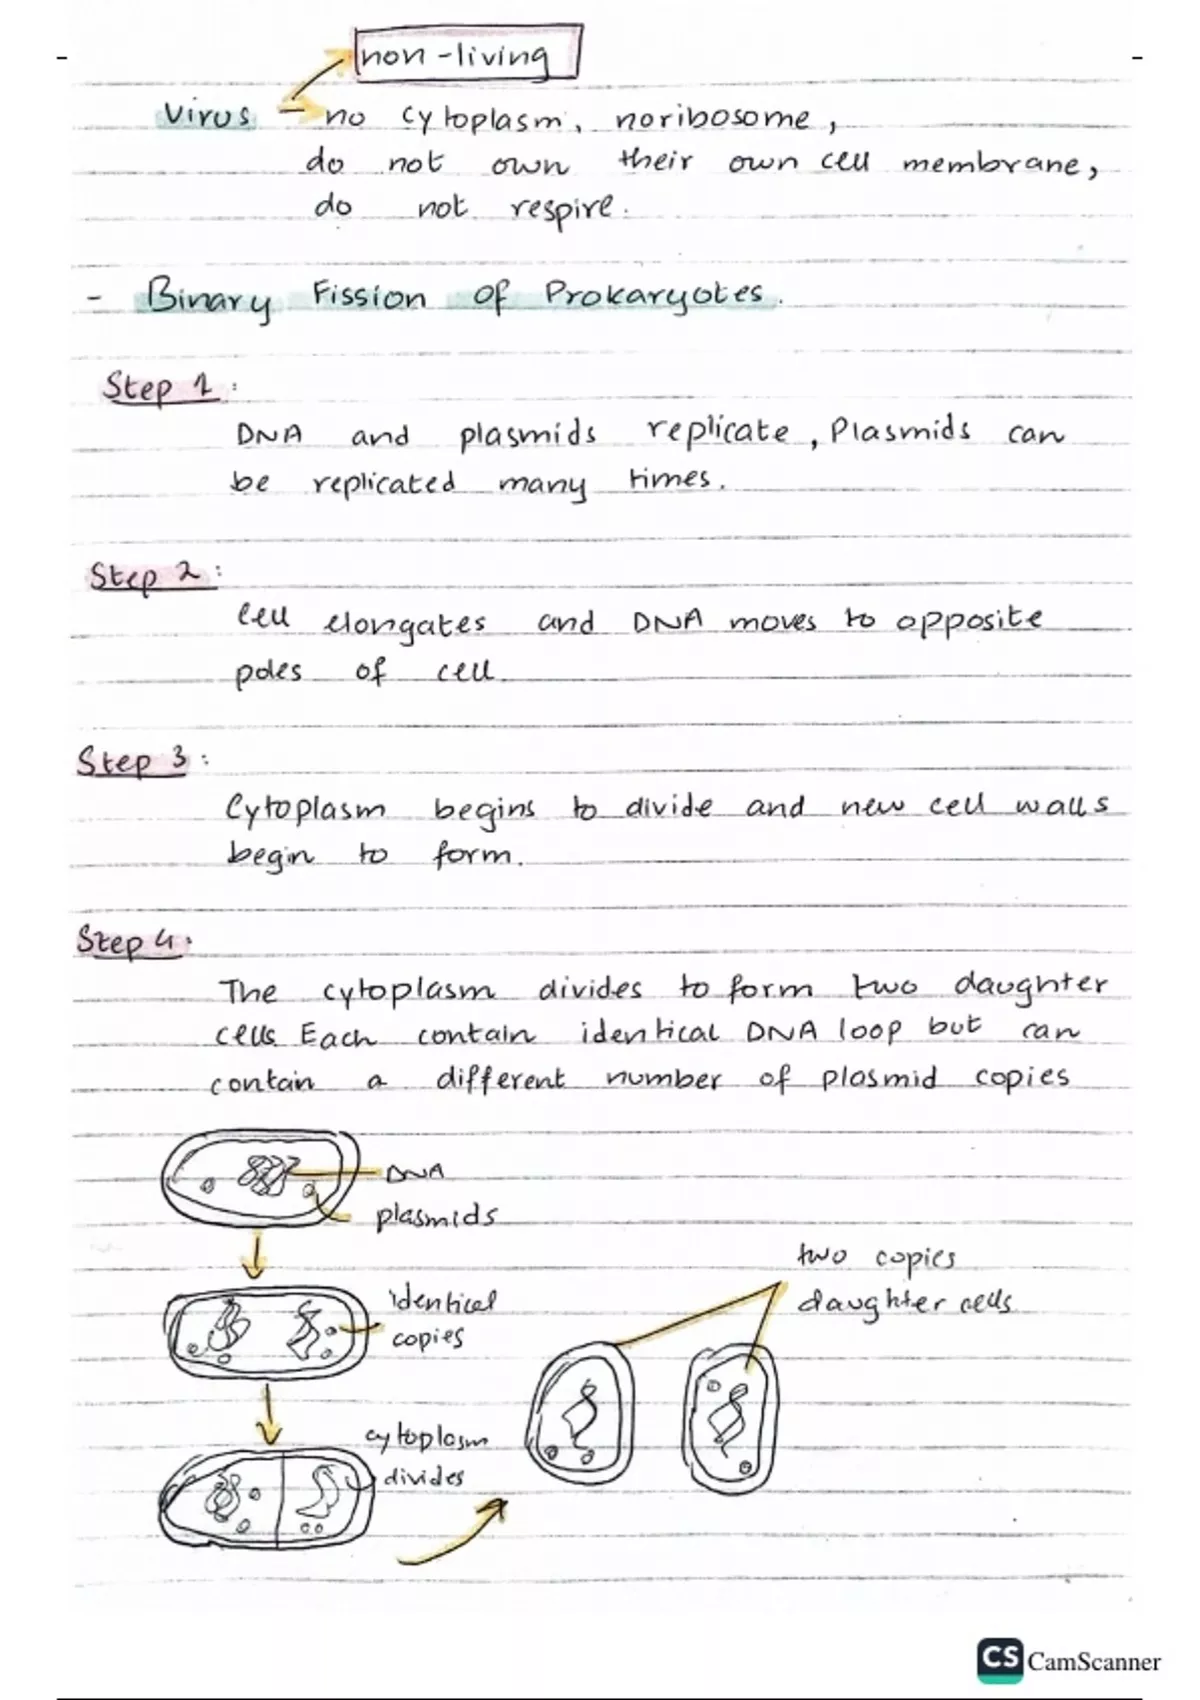 non-living
Virus - no cytoplasm, no ribosome,
do not own their own cell membrane,
do not respire.
- Binary Fission of Prokaryotes.
Step 1:
DNA and plasmids replicate, Plasmids can
be replicated many times.
Step 2:
Cell elongates and DNA moves to opposite
poles of cell.
Step 3:
Cytoplasm begins to divide and new cell walls
begin to form.
Step 4:
The cytoplasm divides to form two daughter
cells. Each contain identical DNA loop but can
contain a different number of plasmid copies
DNA
plasmids
identical
copies
cytoplasm
divides
two copies
daughter cells
CS CamScanner